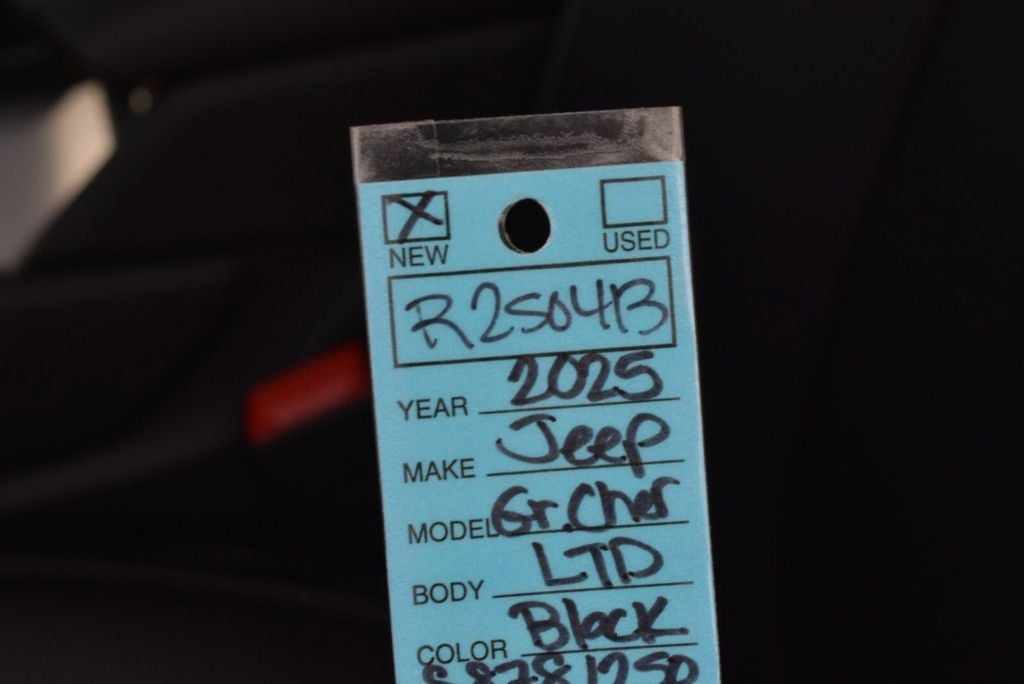 X
NEW USED
R2504B
YEAR 2025
MAKE Jeep
MODEL Gr.Cher
BODY LTD
COLOR Black